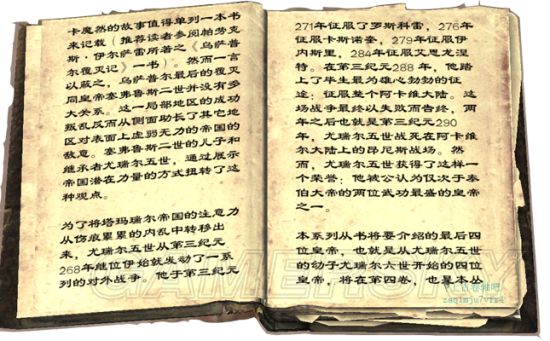 卡魔然的故事值得单列一本书
来记载（推荐读者参阅帕劳克
斯·伊尔萨雷所著之《乌萨普
尔覆灭记》一书）。然而一言
以蔽之，乌萨普尔最后的覆灭
同皇帝塞弗鲁斯二世并没有多
大关系。这一局部地区的成功
叛乱反而从侧面助长了其它地
区对表面上虚弱无力的帝国的
敌意。塞弗鲁斯二世的儿子和
继承者尤瑞尔五世，通过展示
帝国潜在力量的方式扭转了这
种观点。
为了将塔玛瑞尔帝国的注意力
从伤痕累累的内乱中转移出
来，尤瑞尔五世从第三纪元
268年继位伊始就发动了一系
列的对外战争。他于第三纪元
271年征服了罗斯科雷，276年
征服卡斯诺奎，279年征服伊
内斯里，284年征服文思龙涅
特。在第三纪元288 年，他踏
上了毕生最为雄心勃勃的征
途：征服整个阿卡维大陆。这
场战争最终以失败而告终，两
年之后也就是第三纪元290
年，尤瑞尔五世战死在阿卡维
尔大陆上的昂尼斯战场。然
而，尤瑞尔五世获得了这样一
个荣誉：他被公认为仅次于泰
伯大帝的两位武功最盛的皇帝
之一。
本系列丛书将要介绍的最后四
位皇帝，也就是从尤瑞尔五世
的幼子尤瑞尔六世开始的四位
皇帝，将在第四卷，也是本丛
GAMERSKY
@上古卷轴吧
zaq1mju7vfr4